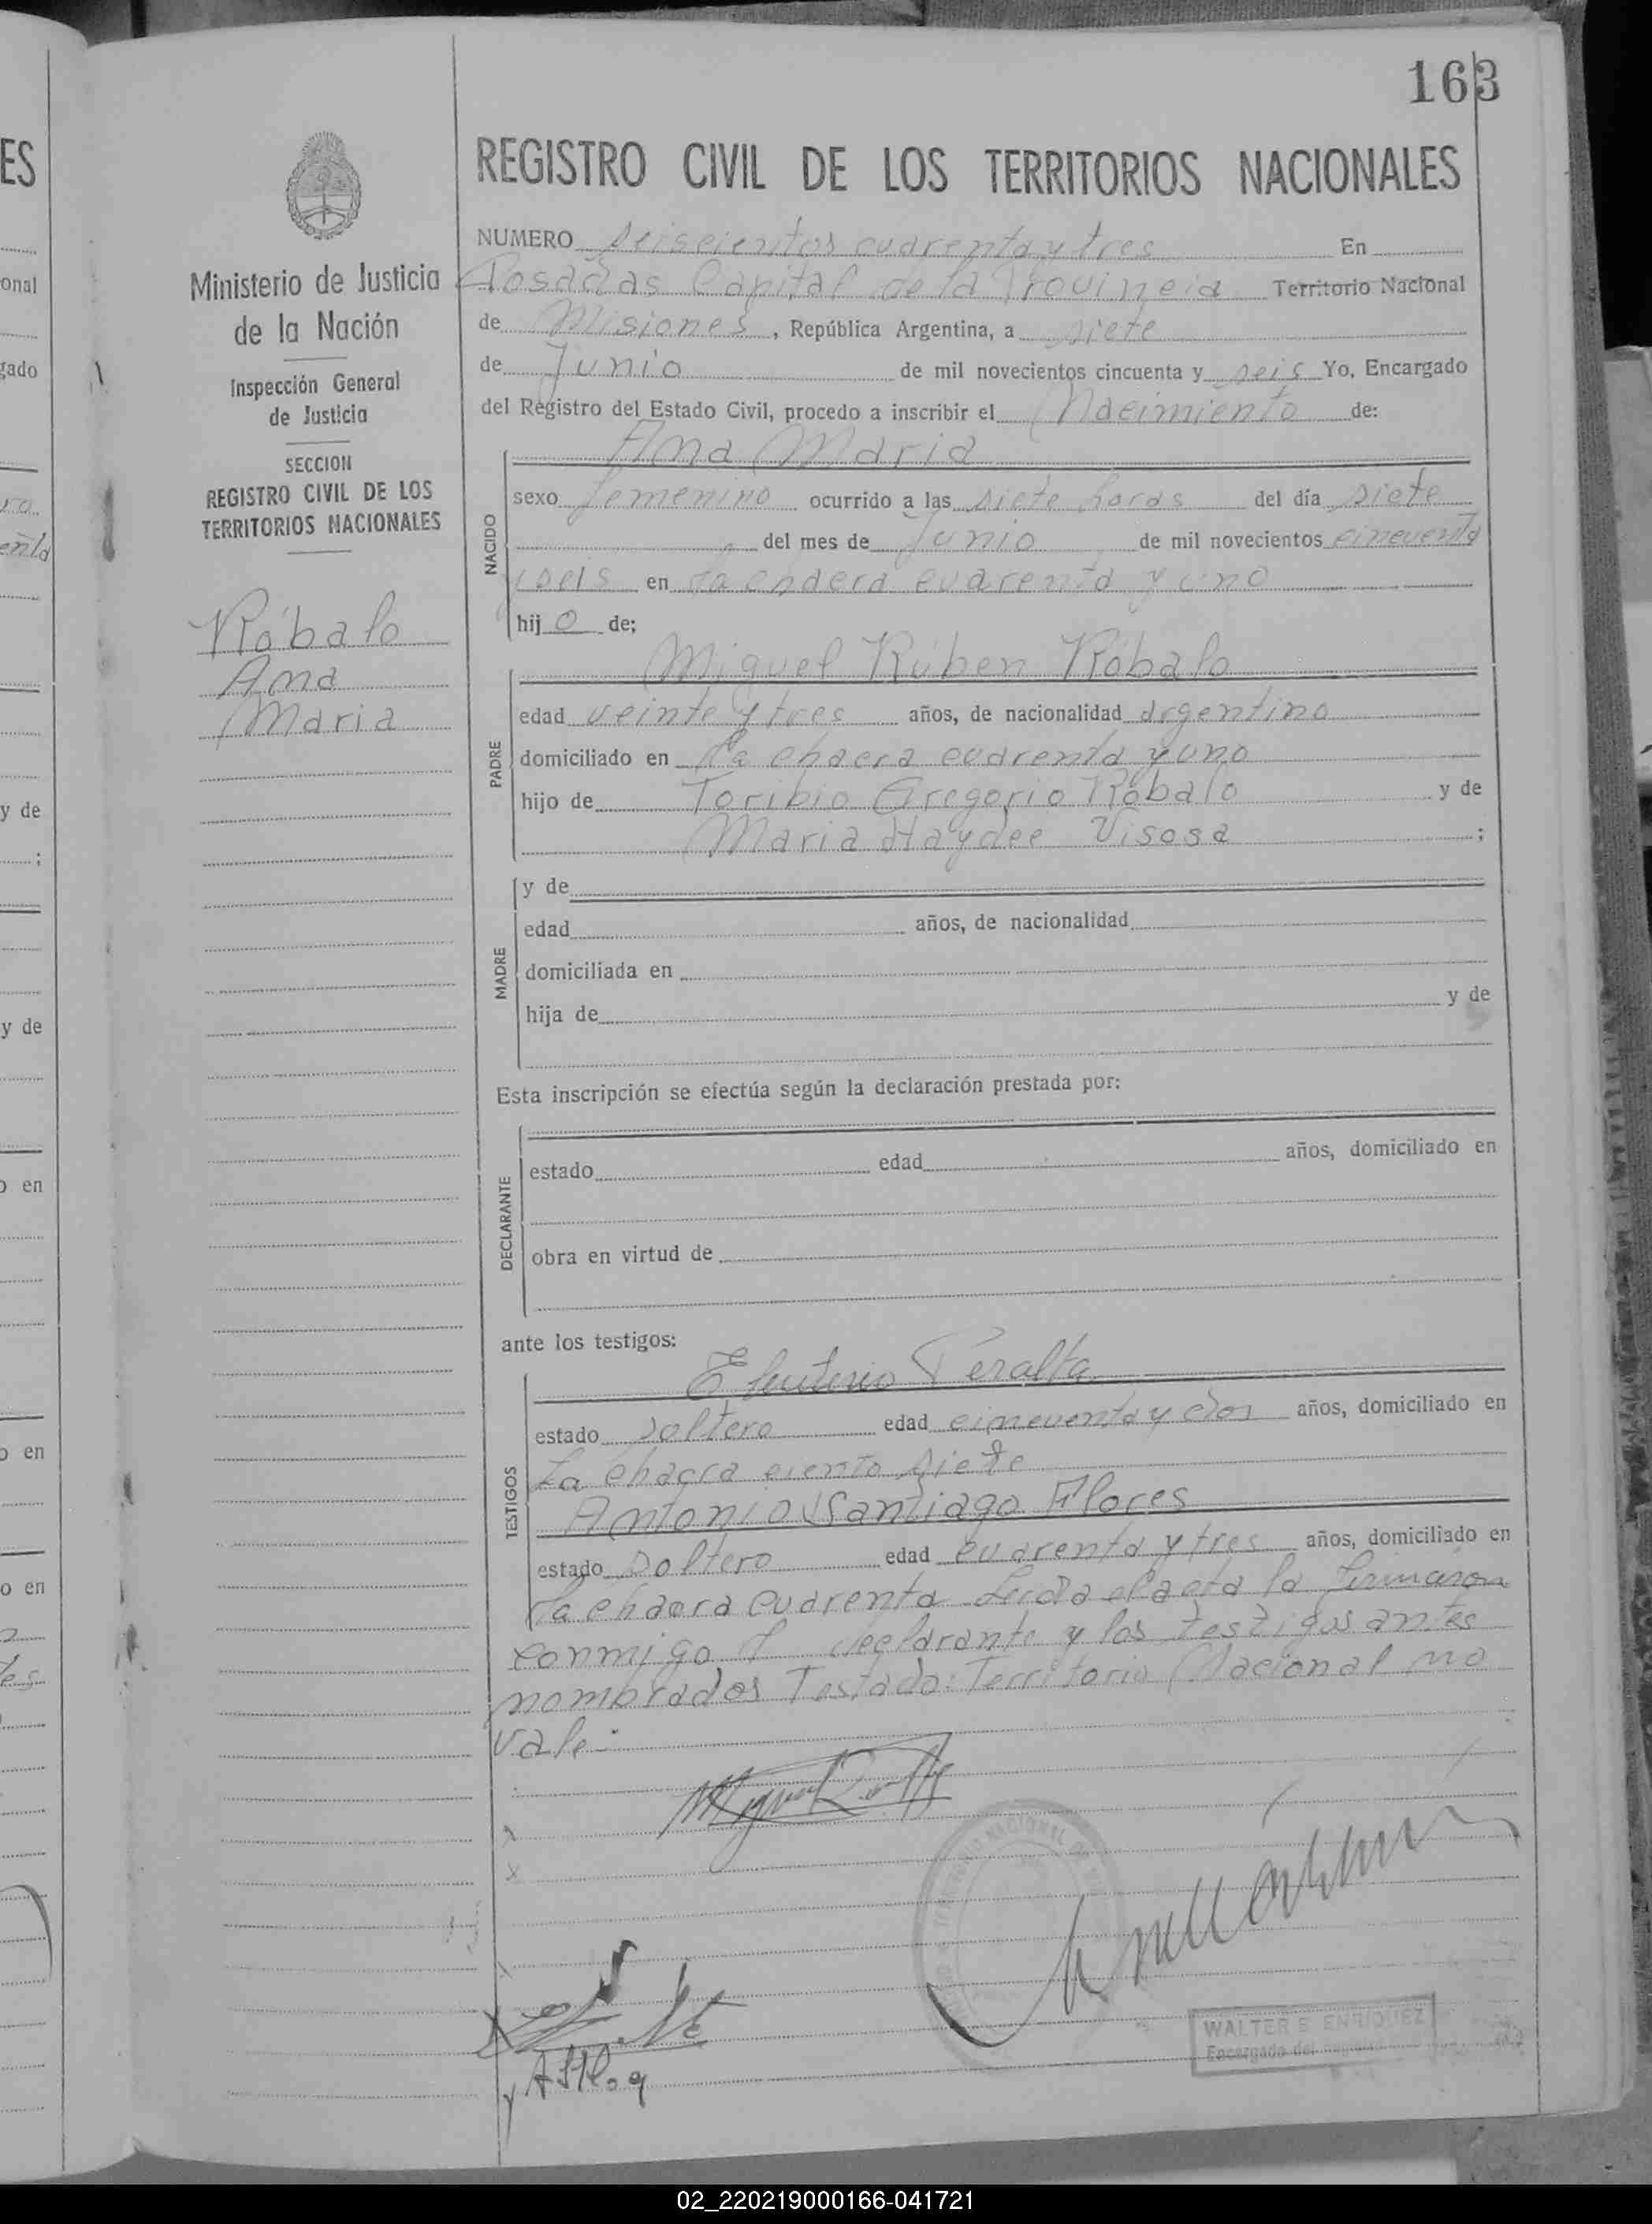 163
REGISTRO CIVIL DE LOS TERRITORIOS NACIONALES
NUMERO seiscientos cuarenta y tres En
Posadas Capital de la Provincia Territorio Nacional
de Misiones, República Argentina, a siete
de Junio de mil novecientos cincuenta y seis Yo, Encargado
del Registro del Estado Civil, procedo a inscribir el Nacimiento de:
Ana Maria
NACIDO
sexo femenino ocurrido a las siete horas del día siete
del mes de Junio de mil novecientos cincuenta
y seis en la chacra cuarenta y uno
hijo de;
Miguel Rúben Róbalo
PADRE
edad veinte y tres años, de nacionalidad argentino
domiciliado en la chacra cuarenta y uno
hijo de Toribio Gregorio Róbalo y de
Maria Haydee Visosa ;
MADRE
y de
edad años, de nacionalidad
domiciliada en
hija de y de
Esta inscripción se efectúa según la declaración prestada por:
DECLARANTE
estado edad años, domiciliado en
obra en virtud de
ante los testigos:
TESTIGOS
Eleuterio Peralta
estado soltero edad cincuenta y dos años, domiciliado en
La chacra ciento siete
Antonio Santiago Flores
estado soltero edad cuarenta y tres años, domiciliado en
la chacra cuarenta Leida el acta la firmaron
conmigo el declarante y los testigos antes
nombrados Testado: Territorio Nacional no
vale-
WALTER E. ENRIQUEZ
Encargado del Registro
Ministerio de Justicia
de la Nación
Inspección General
de Justicia
SECCION
REGISTRO CIVIL DE LOS
TERRITORIOS NACIONALES
Róbalo
Ana
Maria
ES
onal
gado
y de
;
y de
o en
o en
o en
02_220219000166-041721